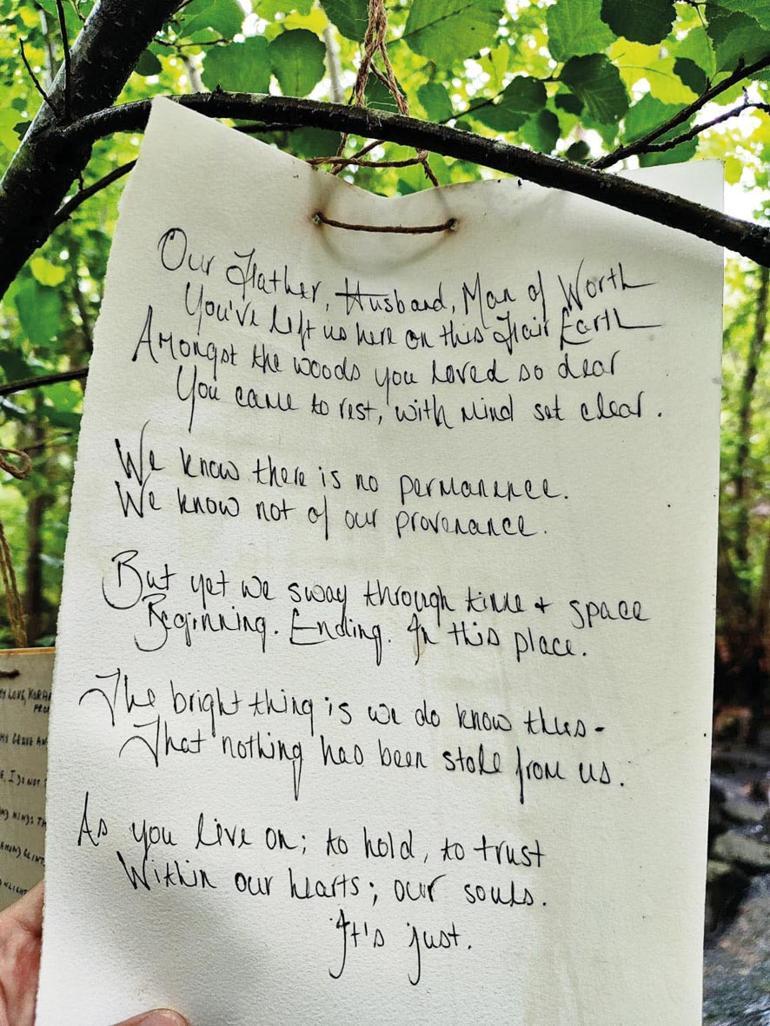 Our Father, Husband, Man of Worth
You've left us here on this Fair Earth
Amongst the woods you loved so dear
You came to rest, with mind set clear.
We know there is no permanence.
We know not of our provenance.
But yet we sway through time + space
Beginning. Ending. In this place.
The bright thing is we do know thus-
That nothing has been stole from us.
As you live on; to hold, to trust
Within our hearts; our souls.
It's just.
MY LOVE,